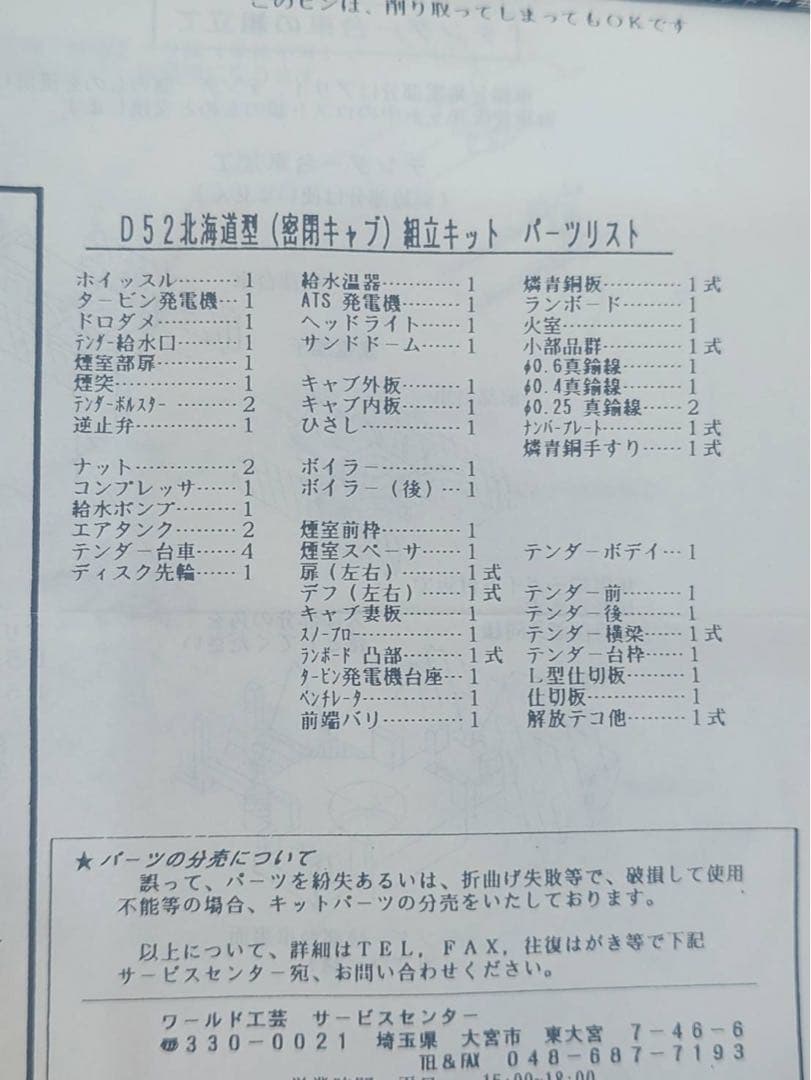 このピンは、削り取ってしまってもOKです
D52北海道型(密閉キャブ)組立キット パーツリスト
ホイッスル………1
タービン発電機…1
ドロダメ…………1
テンダー給水口…1
煙室部扉…………1
煙突………………1
テンダーボルスター…2
逆止弁……………1
ナット……………2
コンプレッサ……1
給水ポンプ………1
エアタンク………2
テンダー台車……4
ディスク先輪……1
給水温器…………1
ATS 発電機………1
ヘッドライト……1
サンドドーム……1
キャブ外板………1
キャブ内板………1
ひさし……………1
ボイラー…………1
ボイラー(後)…1
煙室前枠…………1
煙室スペーサ……1
扉(左右)………1式
デフ(左右)……1式
キャブ妻板………1
スノープロー…………1
ランボード 凸部………1式
タービン発電機台座…1
ベンチレータ…………1
前端バリ…………1
燐青銅板…………1式
ランボード………1
火室………………1
小部品群…………1式
φ0.6真鍮線………1
φ0.4真鍮線………1
φ0.25 真鍮線……2
ナンバープレート………1式
燐青銅手すり……1式
テンダーボデイ…1
テンダー前………1
テンダー後………1
テンダー横梁……1式
テンダー台枠……1
L型仕切板………1
仕切板……………1
解放テコ他………1式
★ パーツの分売について
誤って、パーツを紛失あるいは、折曲げ失敗等で、破損して使用
不能等の場合、キットパーツの分売をいたしております。
以上について、詳細はTEL,FAX,往復はがき等で下記
サービスセンター宛、お問い合わせください。
ワールド工芸 サービスセンター
☎330-0021 埼玉県 大宮市 東大宮 7-46-6
TEL&FAX 048-687-7193
15:00~18:00